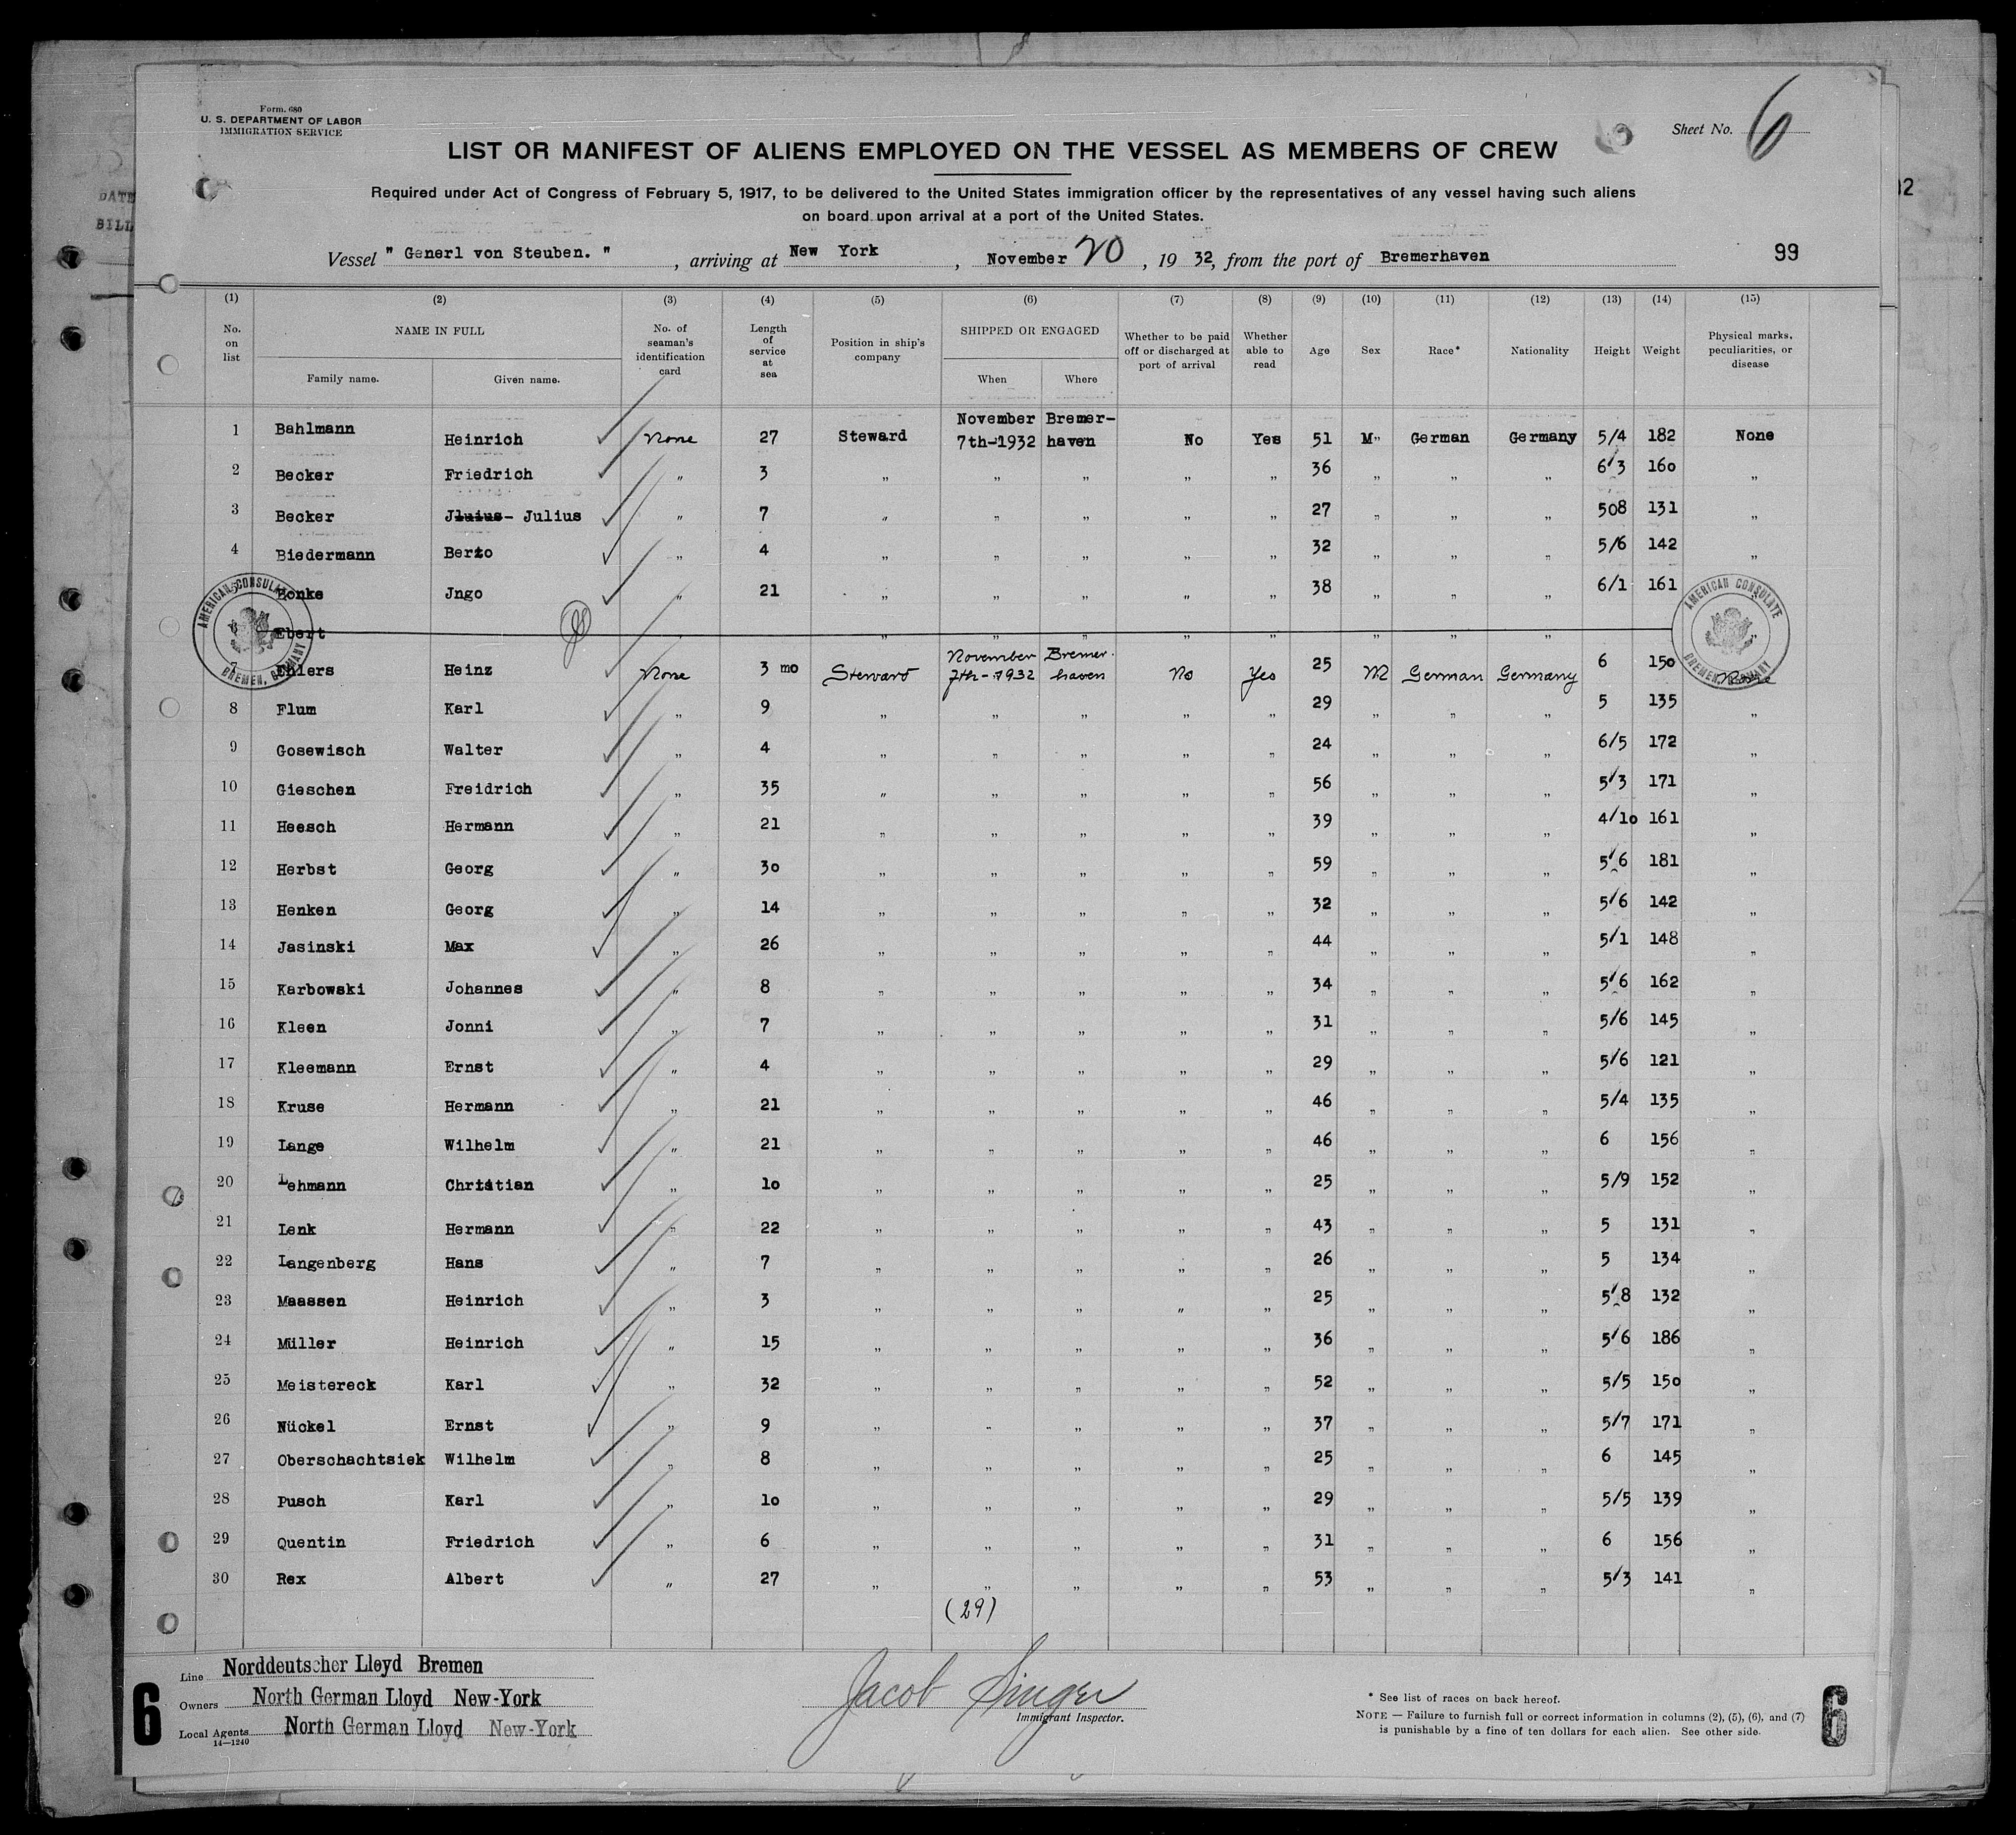 Form. 680
U. S. DEPARTMENT OF LABOR
IMMIGRATION SERVICE
Sheet No. 6
LIST OR MANIFEST OF ALIENS EMPLOYED ON THE VESSEL AS MEMBERS OF CREW
Required under Act of Congress of February 5, 1917, to be delivered to the United States immigration officer by the representatives of any vessel having such aliens
on board upon arrival at a port of the United States.
Vessel " Generl von Steuben. " , arriving at New York , November 20 , 19 32, from the port of Bremerhaven 99
(1) (2) (3) (4) (5) (6) (7) (8) (9) (10) (11) (12) (13) (14) (15)
No. on list NAME IN FULL Family name. Given name. No. of seaman's identification card Length of service at sea Position in ship's company SHIPPED OR ENGAGED When Where Whether to be paid off or discharged at port of arrival Whether able to read Age Sex Race* Nationality Height Weight Physical marks, peculiarities, or disease
1 Bahlmann Heinrich None 27 Steward November 7th-1932 Bremer-haven No Yes 51 M" German Germany 5/4 182 None
2 Becker Friedrich " 3 " " " " " 36 " " " 6/3 160 "
3 Becker Jluius- Julius " 7 " " " " " 27 " " " 508 131 "
4 Biedermann Berto " 4 " " " " " 32 " " " 5/6 142 "
5 Bonke Jngo " 21 " " " " " 38 " " " 6/1 161 "
6 Ebert " " " " " " " " " "
7 Ehlers Heinz None 3 mo Steward November 7th-1932 Bremer-haven No Yes 25 M German Germany 6 150 None
8 Flum Karl " 9 " " " " " 29 " " " 5 135 "
9 Gosewisch Walter " 4 " " " " " 24 " " " 6/5 172 "
10 Gieschen Freidrich " 35 " " " " " 56 " " " 5/3 171 "
11 Heesch Hermann " 21 " " " " " 39 " " " 4/10 161 "
12 Herbst Georg " 30 " " " " " 59 " " " 5/6 181 "
13 Henken Georg " 14 " " " " " 32 " " " 5/6 142 "
14 Jasinski Max " 26 " " " " " 44 " " " 5/1 148 "
15 Karbowski Johannes " 8 " " " " " 34 " " " 5/6 162 "
16 Kleen Jonni " 7 " " " " " 31 " " " 5/6 145 "
17 Kleemann Ernst " 4 " " " " " 29 " " " 5/6 121 "
18 Kruse Hermann " 21 " " " " " 46 " " " 5/4 135 "
19 Lange Wilhelm " 21 " " " " " 46 " " " 6 156 "
20 Lehmann Christian " 10 " " " " " 25 " " " 5/9 152 "
21 Lenk Hermann " 22 " " " " " 43 " " " 5 131 "
22 Langenberg Hans " 7 " " " " " 26 " " " 5 134 "
23 Maassen Heinrich " 3 " " " " " 25 " " " 5/8 132 "
24 Müller Heinrich " 15 " " " " " 36 " " " 5/6 186 "
25 Meistereck Karl " 32 " " " " " 52 " " " 5/5 150 "
26 Nückel Ernst " 9 " " " " " 37 " " " 5/7 171 "
27 Oberschachtsiek Wilhelm " 8 " " " " " 25 " " " 6 145 "
28 Pusch Karl " 10 " " " " " 29 " " " 5/5 139 "
29 Quentin Friedrich " 6 " " " " " 31 " " " 6 156 "
30 Rex Albert " 27 " " " " " 53 " " " 5/3 141 "
(29)
AMERICAN CONSULATE BREMEN, GERMANY
AMERICAN CONSULATE BREMEN, GERMANY
Line Norddeutscher Lloyd Bremen
Owners North German Lloyd New-York
Local Agents North German Lloyd New-York
14—1240
6
Jacob Singer
Immigrant Inspector.
* See list of races on back hereof.
NOTE — Failure to furnish full or correct information in columns (2), (5), (6), and (7)
is punishable by a fine of ten dollars for each alien. See other side.
6
DATE
BILL
32